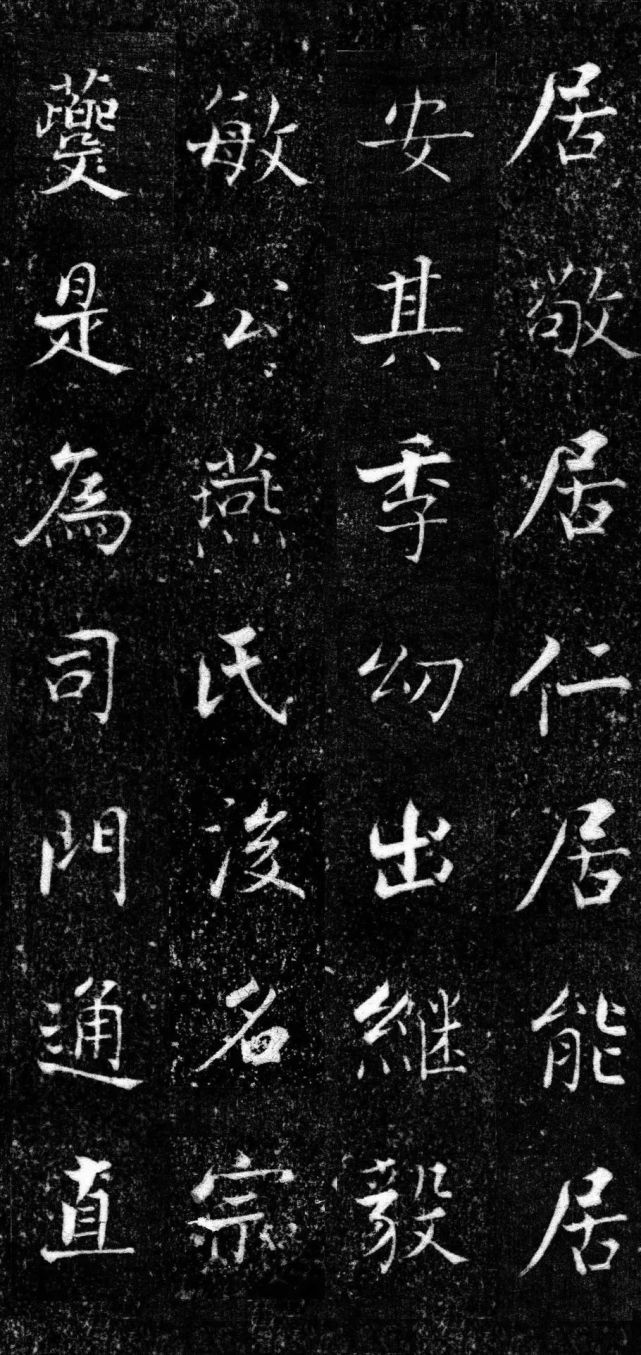 居敬居仁居能居
安其季幼出继毅
敏公燕氏後名宗
夔是為司門通直